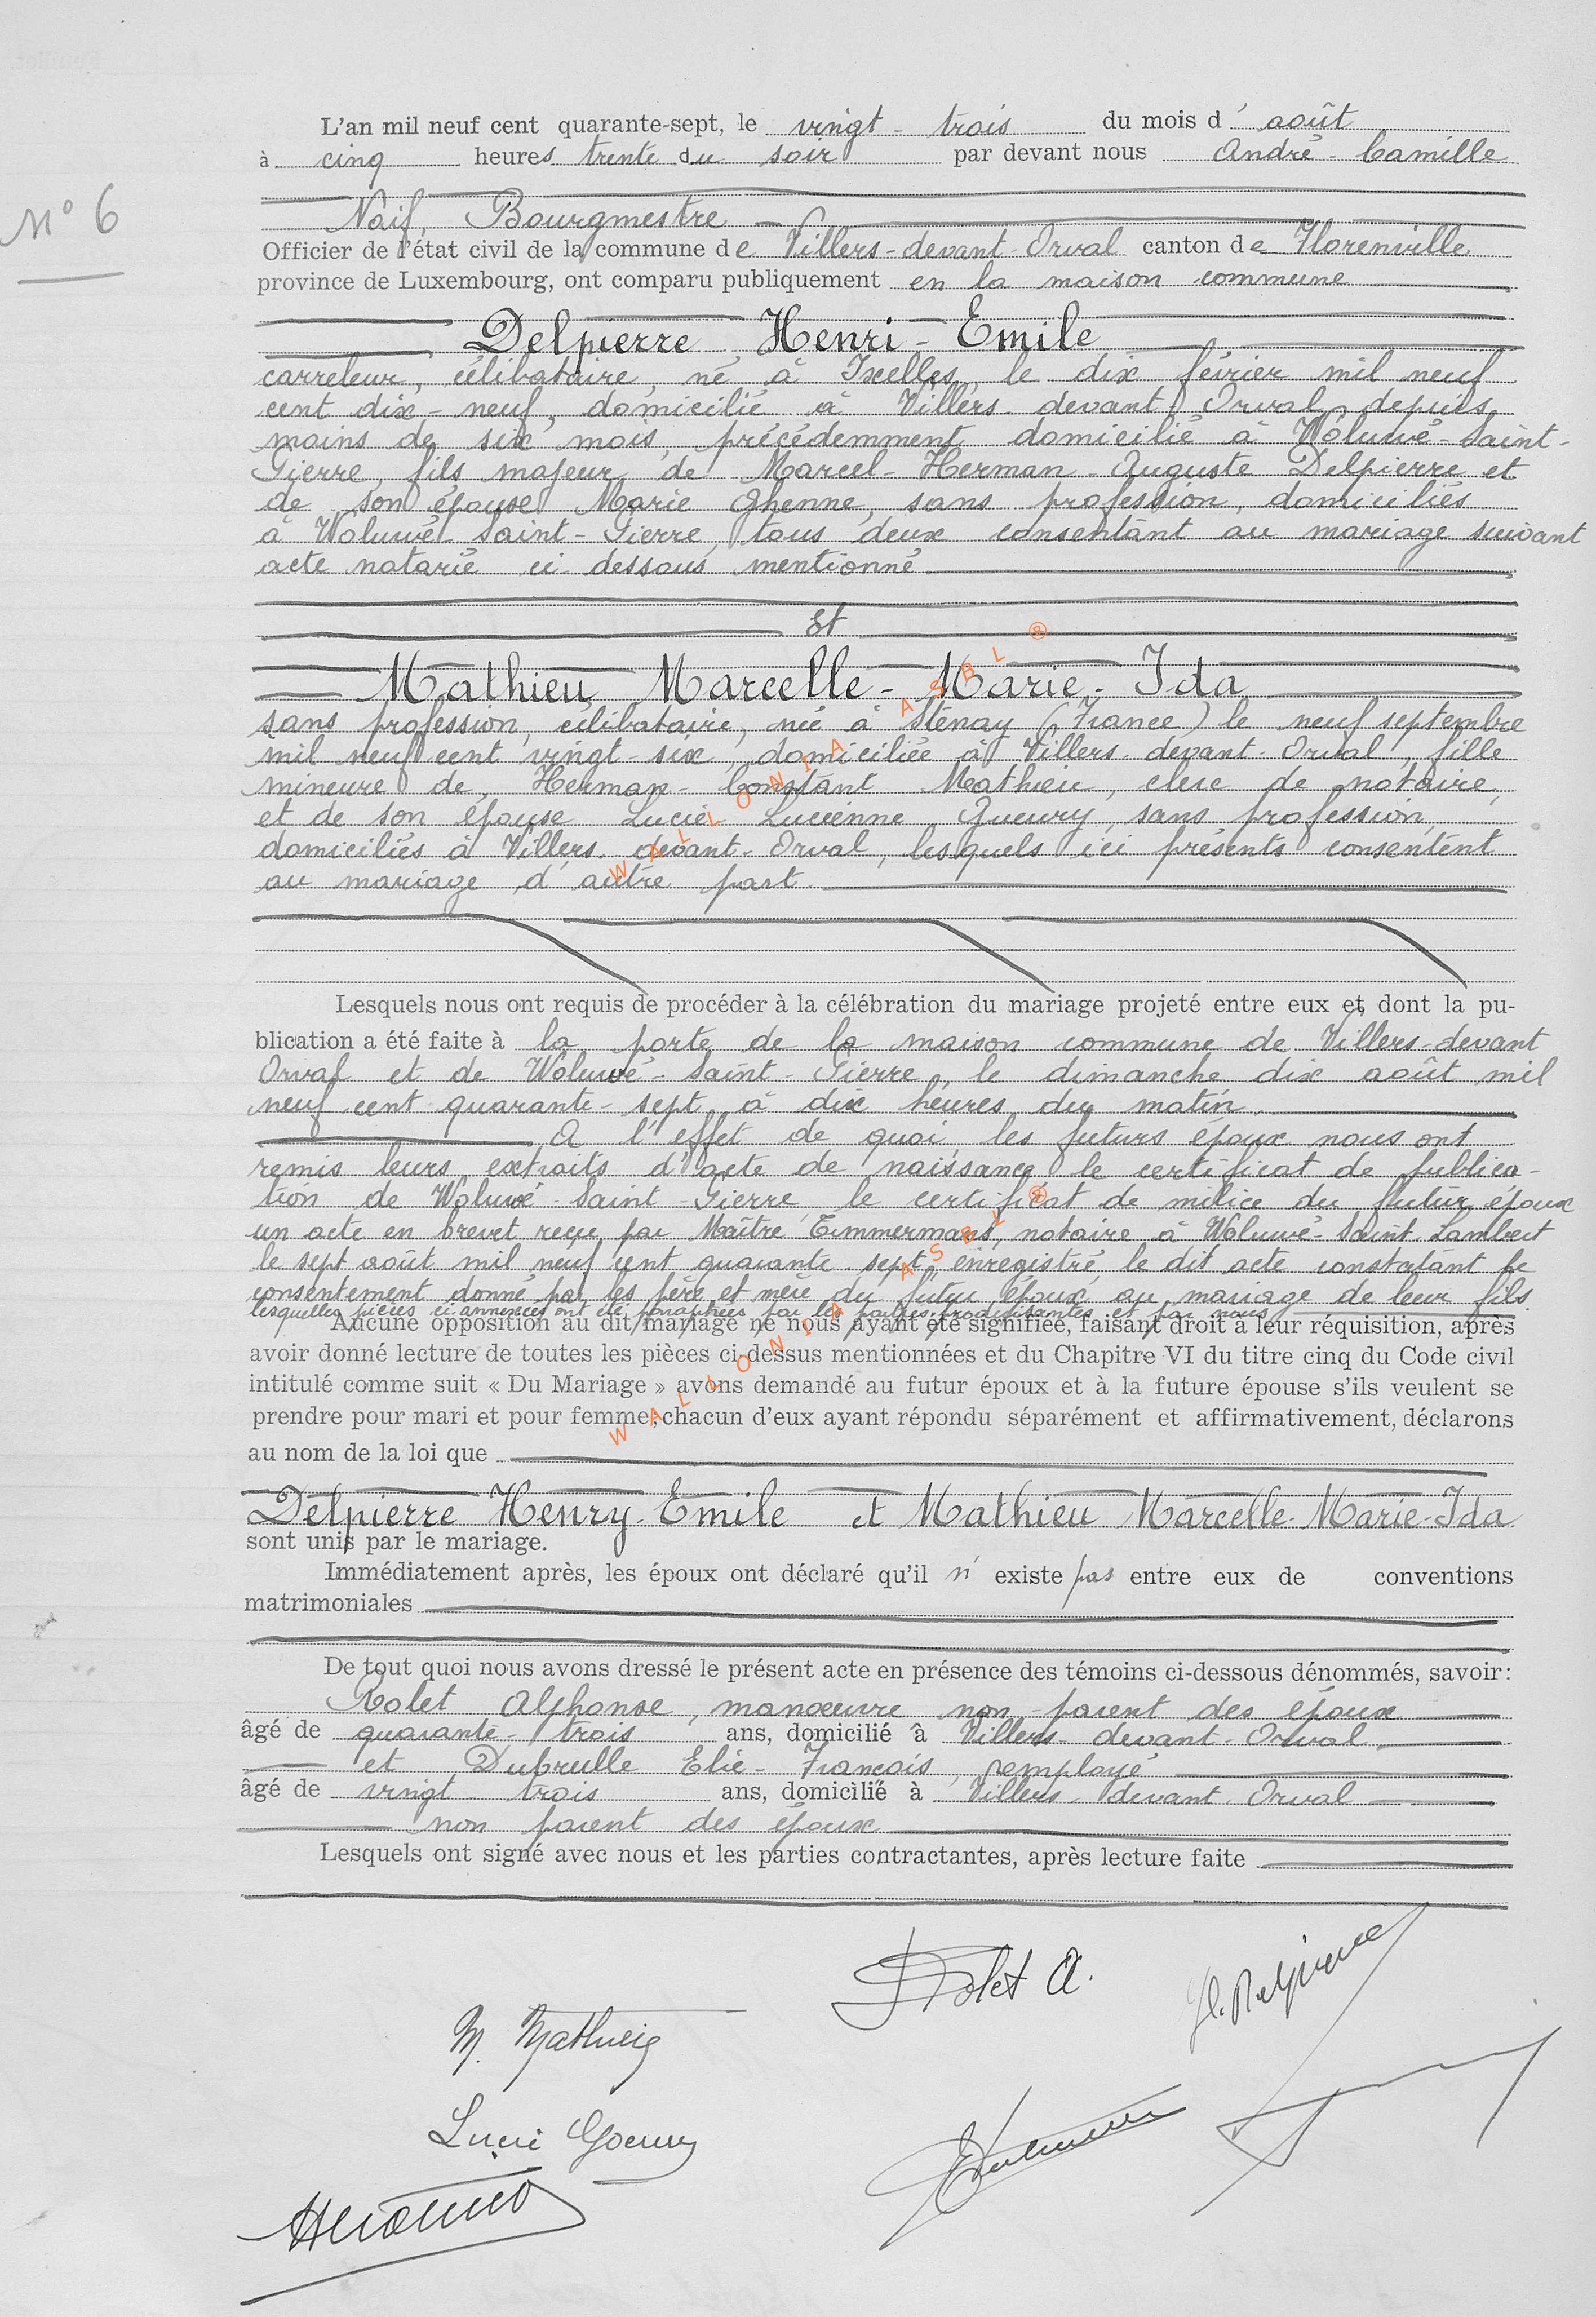 L'an mil neuf cent quarante-sept, le vingt-trois du mois d'août
à cinq heures trente du soir par devant nous André-Camille
N° 6
Naif, Bourgmestre
Officier de l'état civil de la commune de Villers-devant-Orval canton de Florenville
province de Luxembourg, ont comparu publiquement en la maison commune
Delpierre Henri-Emile
carreleur, célibataire, né à Ixelles, le dix février mil neuf
cent dix-neuf, domicilié à Villers-devant Orval depuis
moins de six mois, précédemment domicilié à Woluwé-Saint-
Pierre, fils majeur de Marcel-Herman-Auguste Delpierre et
de son épouse Marie Ghenne, sans profession, domiciliés
à Woluwé-Saint-Pierre, tous deux consentant au mariage suivant
acte notarié ci-dessous mentionné
Et
Mathieu Marcelle-Marie-Ida
sans profession, célibataire, née à Stenay (France) le neuf septembre
mil neuf cent vingt-six, domiciliée à Villers-devant-Orval, fille
mineure de Herman-Constant Mathieu, clerc de notaire,
et de son épouse Lucie Lucienne Gueury, sans profession,
domiciliés à Villers-devant-Orval, lesquels ici présents consentent
au mariage d'autre part.
WALLONIA ASBL ®
Lesquels nous ont requis de procéder à la célébration du mariage projeté entre eux et dont la pu-
blication a été faite à la porte de la maison commune de Villers-devant
Orval et de Woluwé-Saint-Pierre, le dimanche dix août mil
neuf cent quarante-sept à dix heures du matin.
A l'effet de quoi, les futurs époux nous ont
remis leurs extraits d'acte de naissance le certificat de publica-
tion de Woluwé-Saint-Pierre, le certificat de milice du futur époux
un acte en brevet reçu par Maître Timmermans, notaire à Woluwé-Saint-Lambert
le sept août mil neuf cent quarante-sept, enregistré, le dit acte constatant le
consentement donné par les père et mère du futur époux au mariage de leur fils.
lesquelles pièces ci-annexées ont été paraphées par les parties produisantes et par nous
Aucune opposition au dit mariage ne nous ayant été signifiée, faisant droit à leur réquisition, après
avoir donné lecture de toutes les pièces ci-dessus mentionnées et du Chapitre VI du titre cinq du Code civil
intitulé comme suit « Du Mariage » avons demandé au futur époux et à la future épouse s'ils veulent se
prendre pour mari et pour femme, chacun d'eux ayant répondu séparément et affirmativement, déclarons
au nom de la loi que
WALLONIA ASBL ®
Delpierre Henry-Emile et Mathieu Marcelle-Marie-Ida
sont unis par le mariage.
Immédiatement après, les époux ont déclaré qu'il n'existe pas entre eux de conventions
matrimoniales
De tout quoi nous avons dressé le présent acte en présence des témoins ci-dessous dénommés, savoir:
Rolet Alphonse, manœuvre non parent des époux
âgé de quarante-trois ans, domicilié à Villers-devant-Orval
et Dubrulle Elie-François, employé
âgé de vingt-trois ans, domicilié à Villers-devant-Orval
non parent des époux
Lesquels ont signé avec nous et les parties contractantes, après lecture faite
Rolet A.
H. Delpierre
M. Mathieu
Lucie Goeury